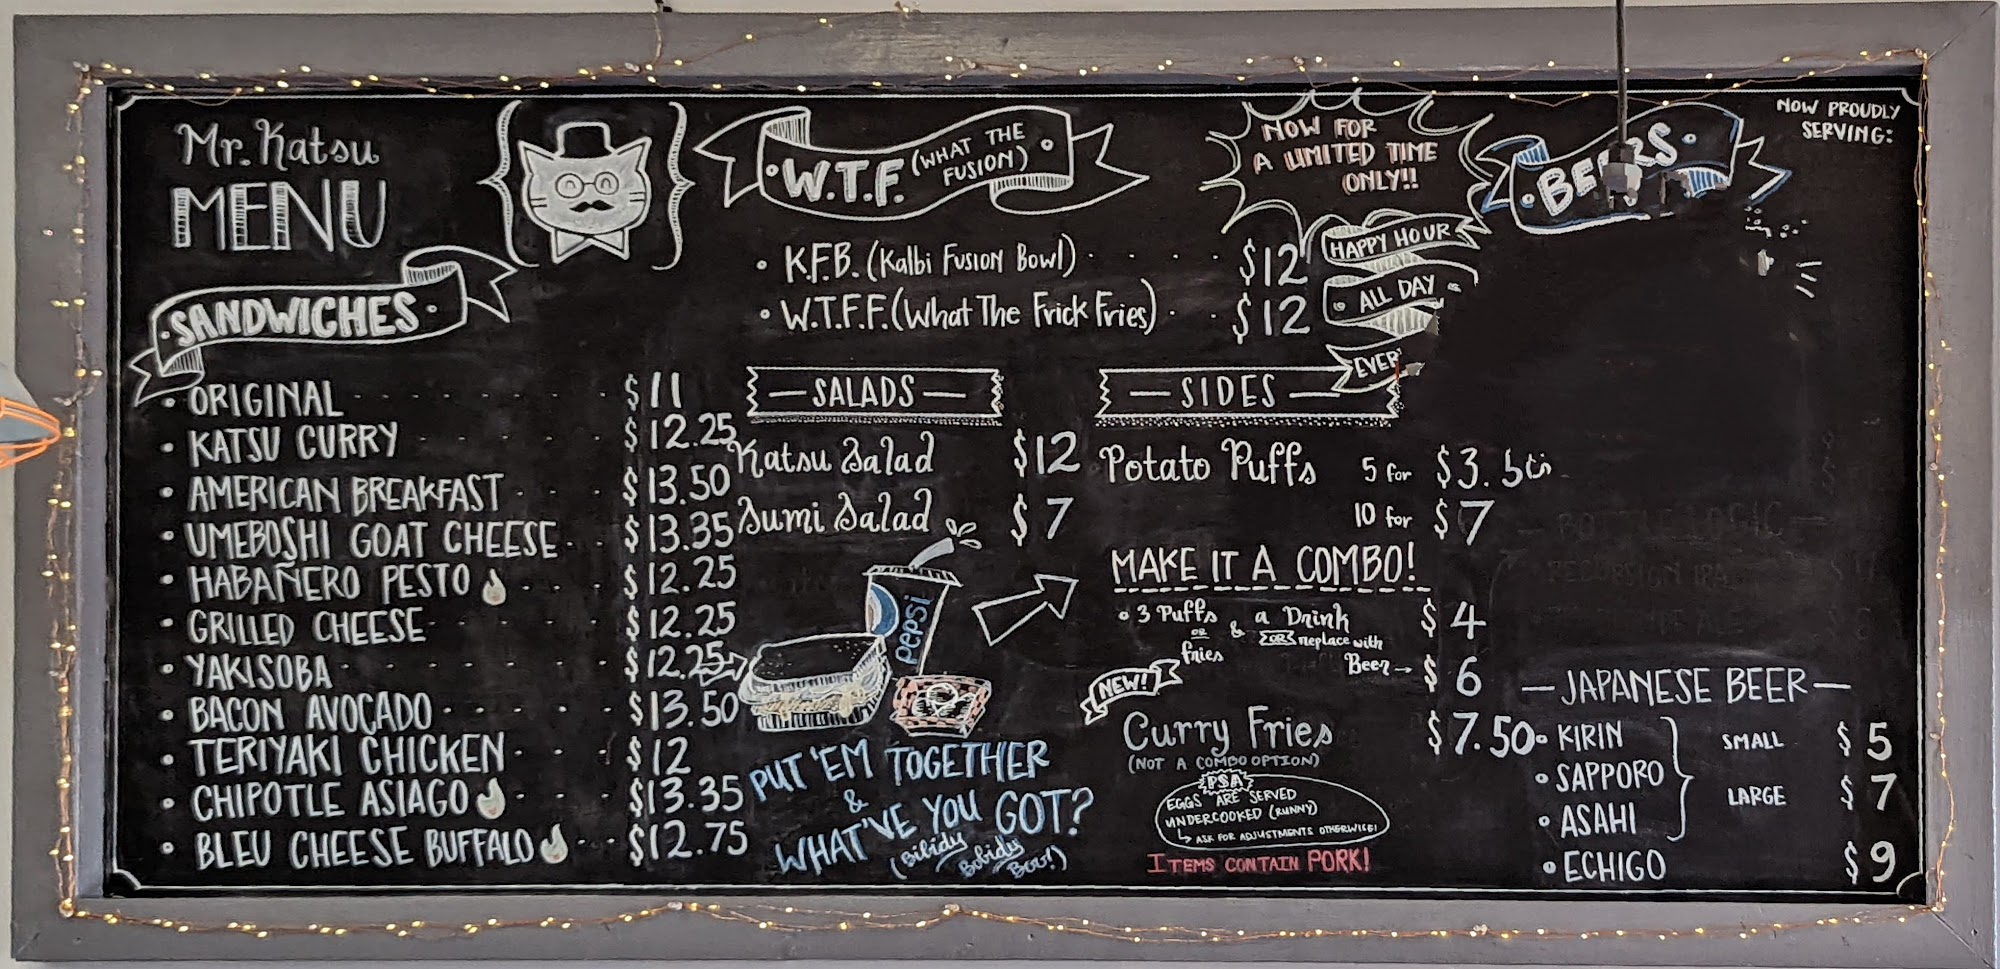 Mr. Katsu
MENU
SANDWICHES
• ORIGINAL $11
• KATSU CURRY $12.25
• AMERICAN BREAKFAST $13.50
• UMEBOSHI GOAT CHEESE $13.35
• HABAÑERO PESTO $12.25
• GRILLED CHEESE $12.25
• YAKISOBA $12.25
• BACON AVOCADO $13.50
• TERIYAKI CHICKEN $12
• CHIPOTLE ASIAGO $13.35
• BLEU CHEESE BUFFALO $12.75
W.T.F. (WHAT THE
FUSION)
• K.F.B. (Kalbi Fusion Bowl) $12
• W.T.F.F. (What The Frick Fries) $12
NOW FOR
A LIMITED TIME
ONLY!!
HAPPY HOUR
ALL DAY
— SALADS —
Katsu Salad $12
Sumi Salad $7
pepsi
PUT 'EM TOGETHER
&
WHAT'VE YOU GOT?
(Bibidy
Bobidy
— SIDES —
Potato Puffs 5 for
10 for $7
MAKE IT A COMBO!
• 3 Puffs & a Drink $4
OR
fries
OR replace with
Beer → $6
NEW!
Curry Fries $7.50
(NOT A COMBO OPTION)
PSA
EGGS ARE SERVED
UNDERCOOKED (RUNNY)
↳ ASK FOR ADJUSTMENTS OTHERWICE!
ITEMS CONTAIN PORK!
BEERS
NOW PROUDLY
SERVING:
— JAPANESE BEER —
• KIRIN
• SAPPORO
• ASAHI
SMALL $5
LARGE $7
• ECHIGO $9